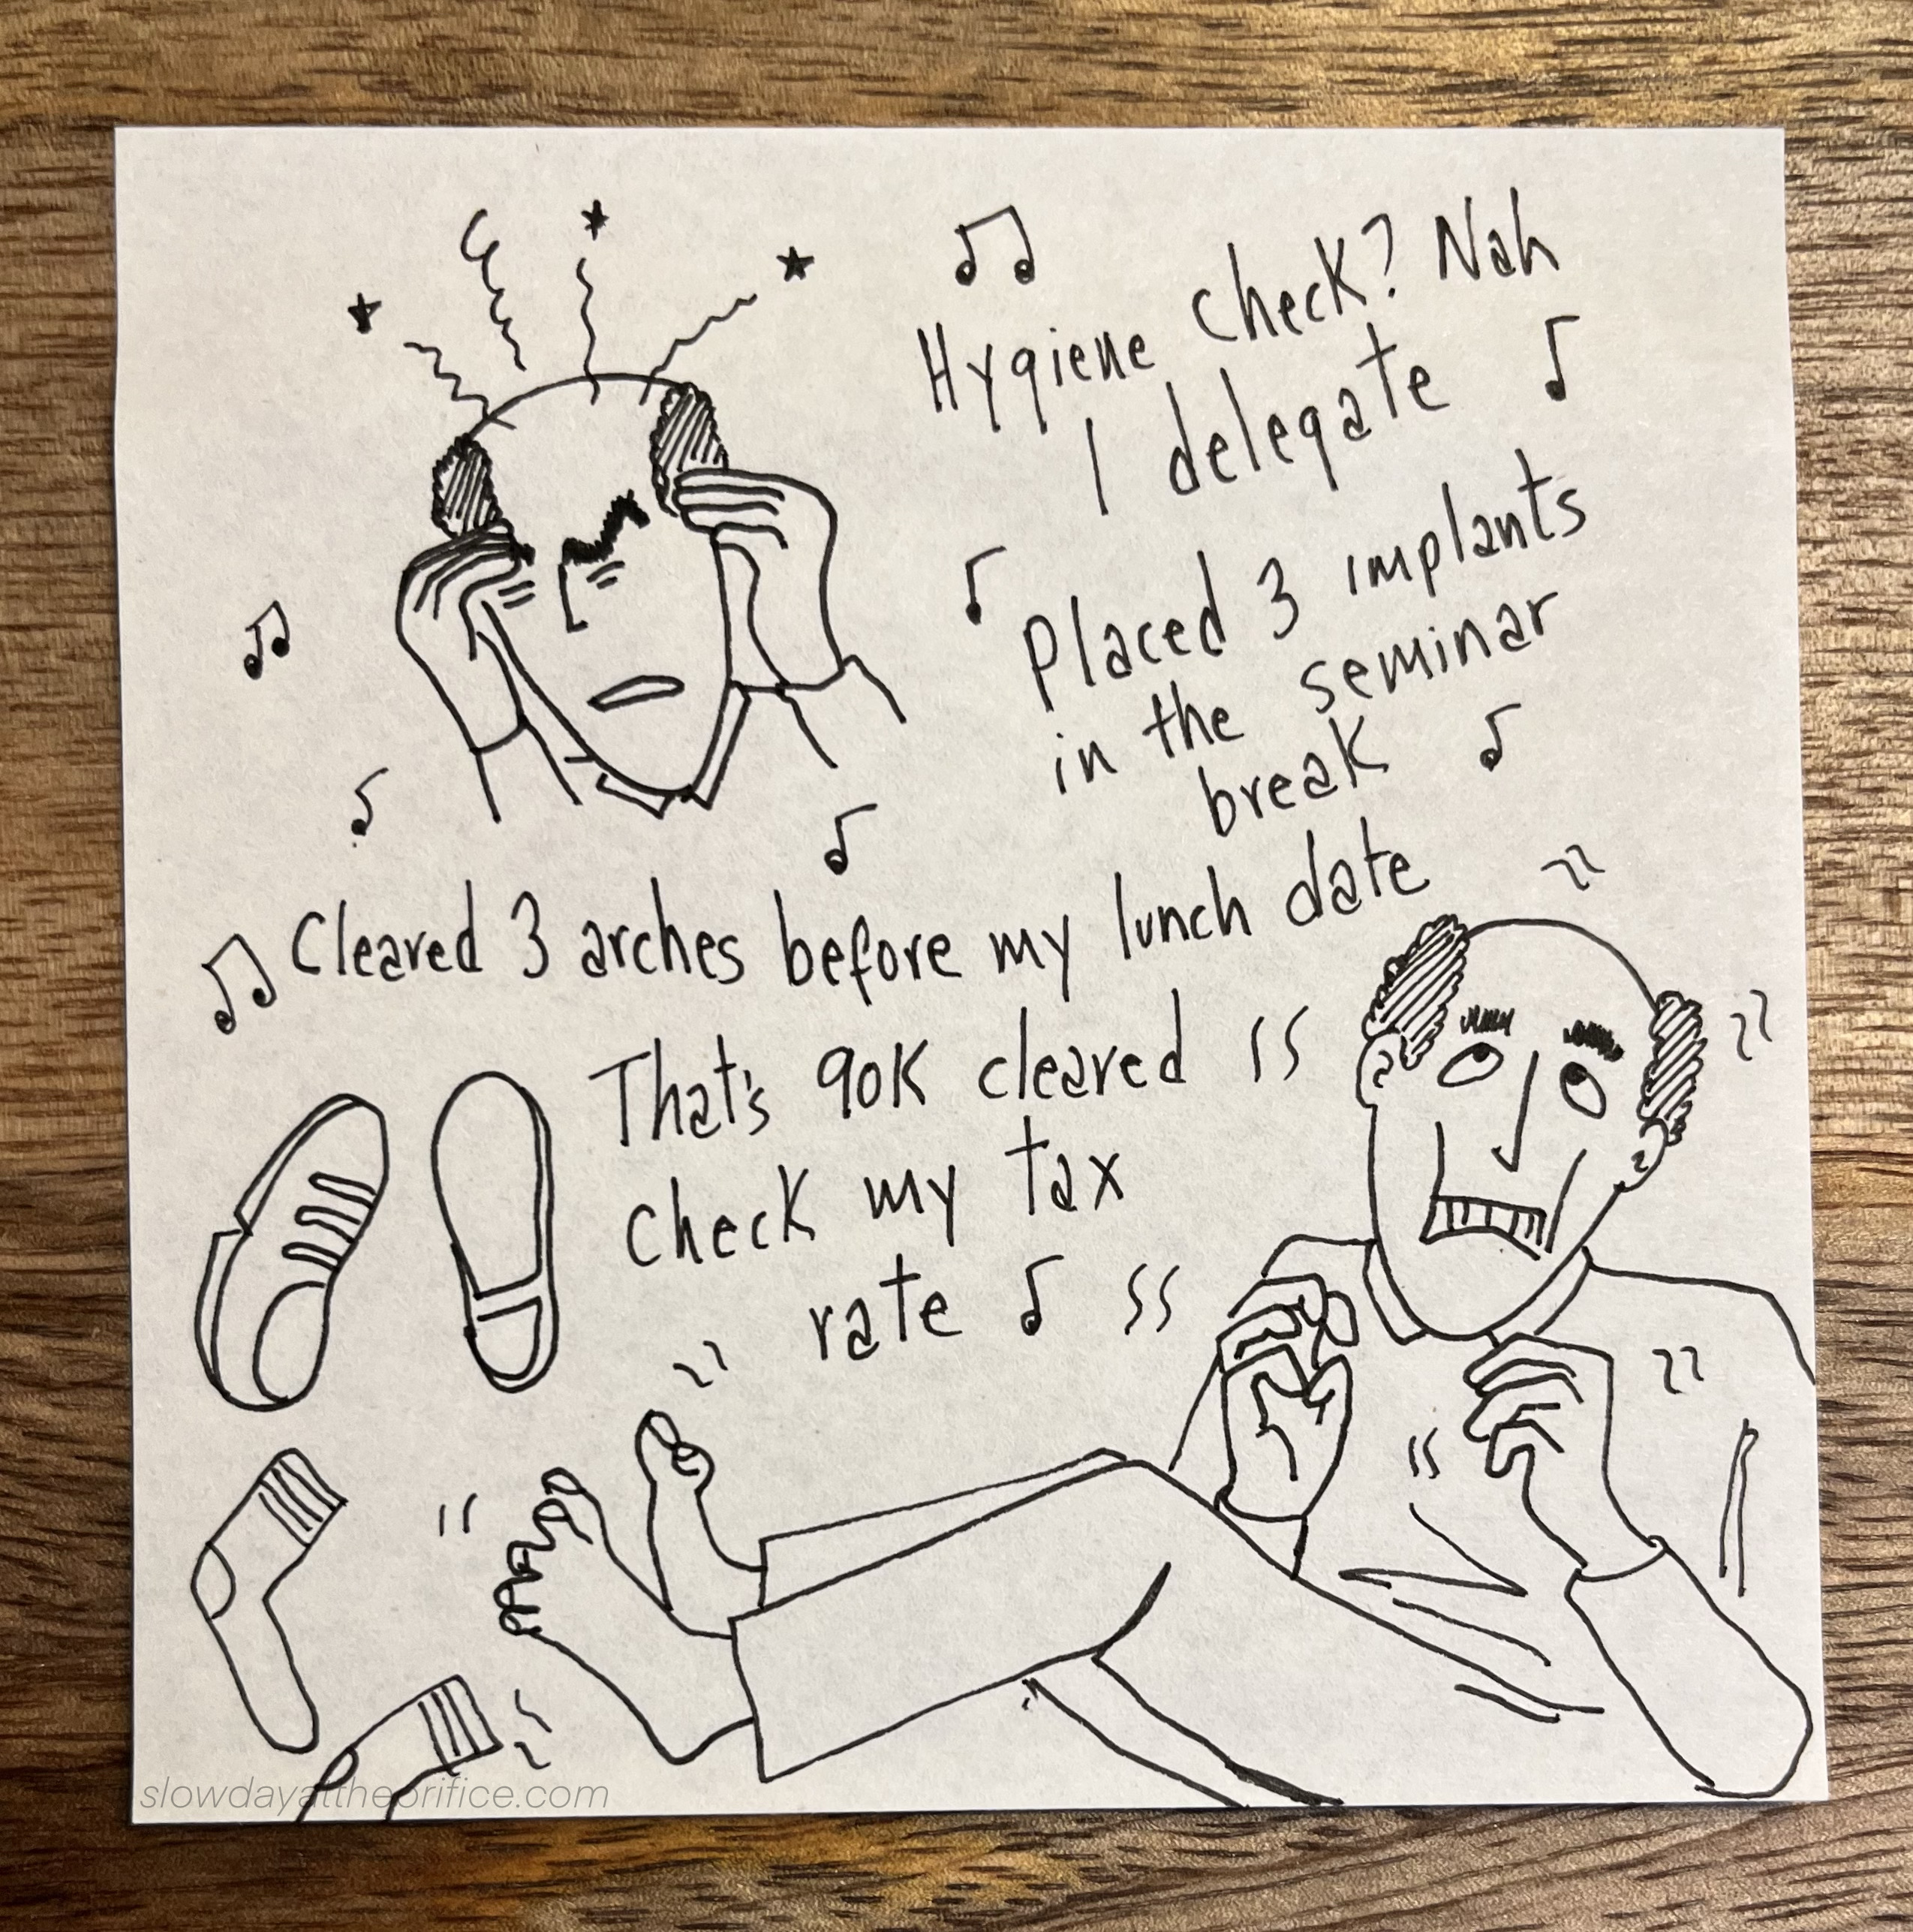 Hygiene check? Nah
I delegate
Placed 3 implants
in the seminar
break
Cleared 3 arches before my lunch date
That's 90K cleared
check my tax
rate
slowdayattheorifice.com